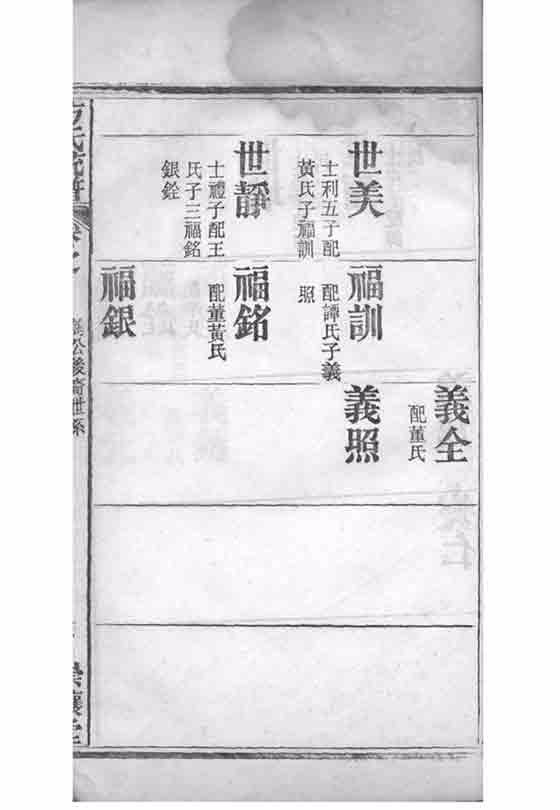 世美
士利五子配
黃氏子福訓
世靜
士禮子配王
氏子三福銘
銀銓
福訓
配譚氏子義
照
福銘
配董黃氏
福銀
義全
配董氏
義照
世系